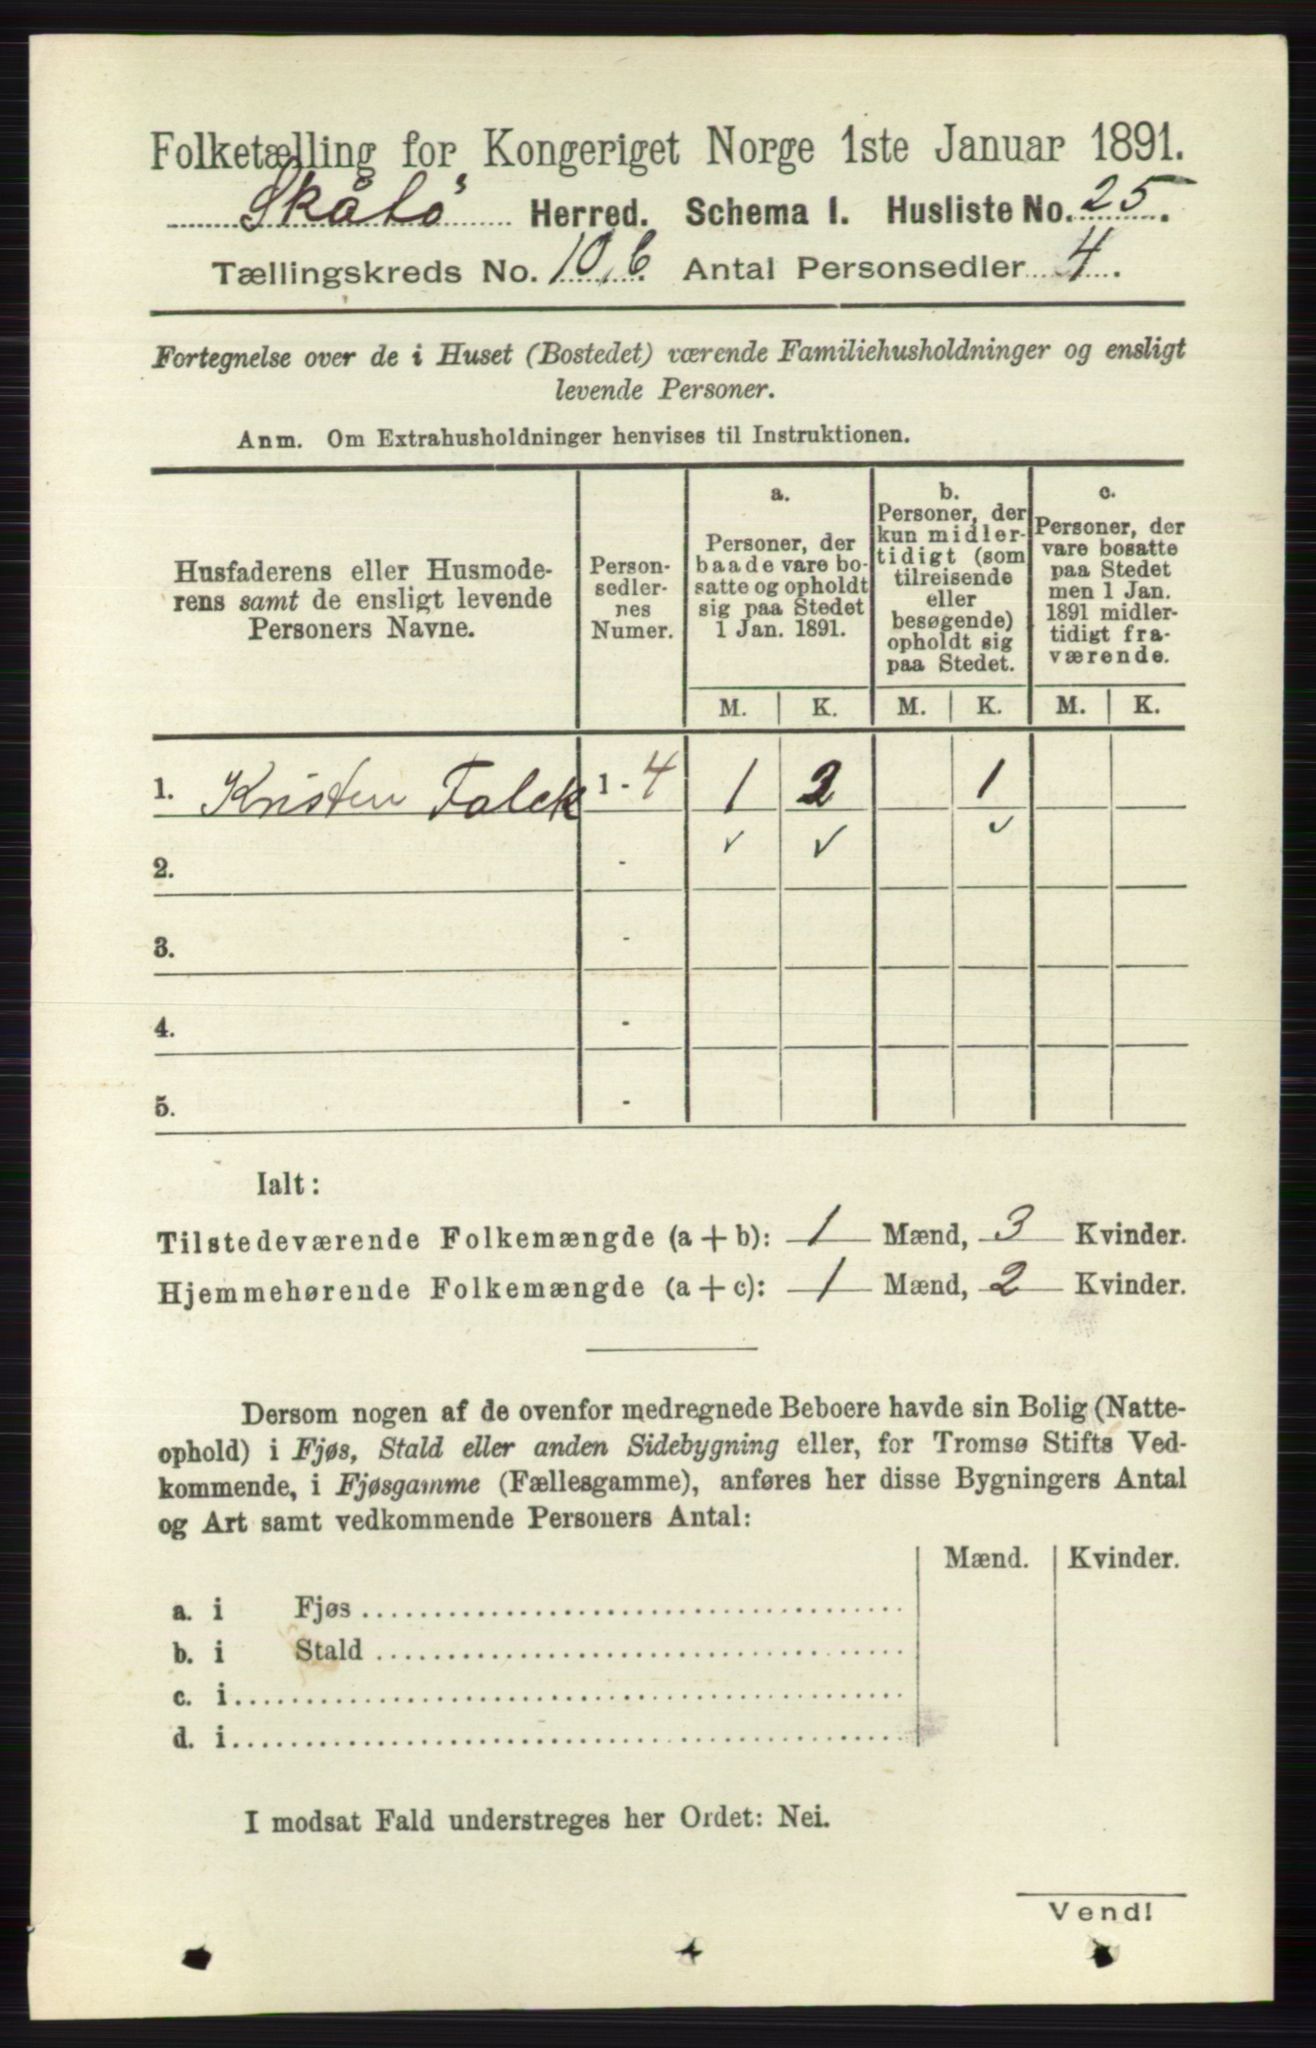 Folketælling for Kongeriget Norge 1ste Januar 1891.
Skåtö Herred. Schema I. Husliste No. 25.
Tællingskreds No. 10, b. Antal Personsedler 4.
Fortegnelse over de i Huset (Bostedet) værende Familiehusholdninger og ensligt
levende Personer.
Anm. Om Extrahusholdninger henvises til Instruktionen.
Husfaderens eller Husmode-
rens samt de ensligt levende
Personers Navne.
Person-
sedler-
nes
Numer.
a.
Personer, der
baade vare bo-
satte og opholdt
sig paa Stedet
1 Jan. 1891.
b.
Personer, der
kun midler-
tidigt (som
tilreisende
eller
besøgende)
opholdt sig
paa Stedet.
c.
Personer, der
vare bosatte
paa Stedet
men 1 Jan.
1891 midler-
tidigt fra-
værende.
M. K. M. K. M. K.
1. Kristen Falck 1 - 4 1 2 1
✓ ✓ ✓
2. -
3. -
4. -
5. -
Ialt:
Tilstedeværende Folkemængde (a + b): 1 Mænd, 3 Kvinder.
Hjemmehørende Folkemængde (a + c): 1 Mænd, 2 Kvinder.
Dersom nogen af de ovenfor medregnede Beboere havde sin Bolig (Natte-
ophold) i Fjøs, Stald eller anden Sidebygning eller, for Tromsø Stifts Ved-
kommende, i Fjøsgamme (Fællesgamme), anføres her disse Bygningers Antal
og Art samt vedkommende Personers Antal:
Mænd. Kvinder.
a. i Fjøs
b. i Stald
c. i
d. i
I modsat Fald understreges her Ordet: Nei.
Vend!